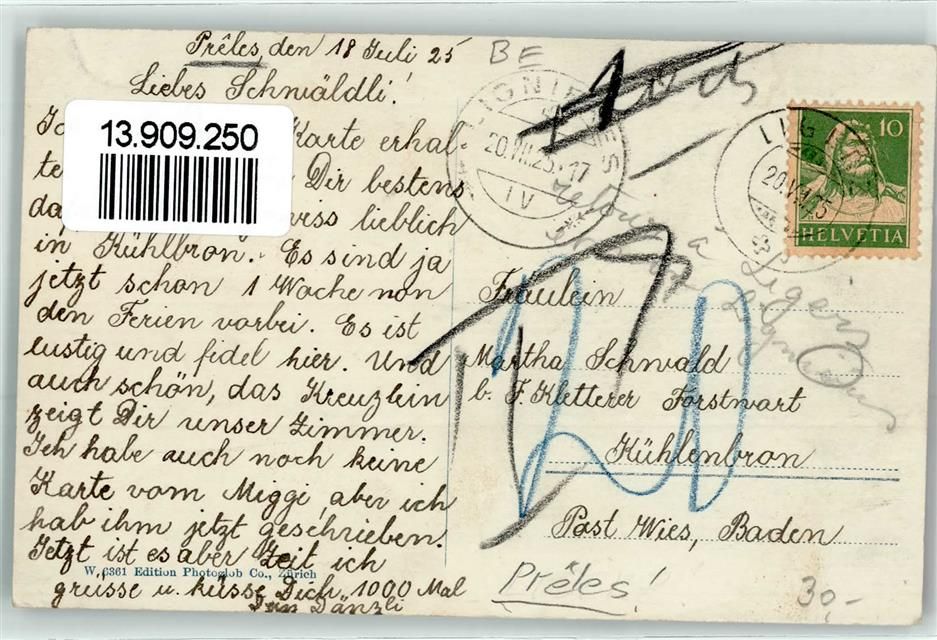 Prêles, den 18 Juli 25
Liebes Schwäldli!
Karte erhal-
te Dir bestens
lieblich
in Kühlbron. Es sind ja
jetzt schon 1 Woche von
den Ferien vorbei. Es ist
lustig und fidel hier. Und
auch schön, das Kreuzlein
zeigt Dir unser Zimmer.
Ich habe auch noch keine
Karte vom Miggi, aber ich
hab ihm jetzt geschrieben.
Jetzt ist es aber Zeit ich
grüsse u. küsse Dich 1000 Mal
Dein Dänzli
13.909.250
W. 6361 Edition Photoglob Co., Zürich
BE
20.VII.25.17
IV
LIG
20.VII.25
10
HELVETIA
Retour
à
Ligerz
20
Fräulein
Martha Schwald
b. F. Kletterer Forstwart
Kühlenbron
Post Wies, Baden
Prêles!
30,-